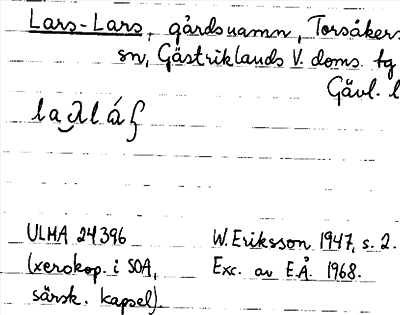 Lars-Lars, gårdsnamn, Torsåkers
sn, Gästriklands V. doms. tg
Gävl. l
ULMA 24396
(xerokop. i SOA,
särsk. kapsel).
W. Eriksson 1947, s. 2.
Exc. av E.Å. 1968.